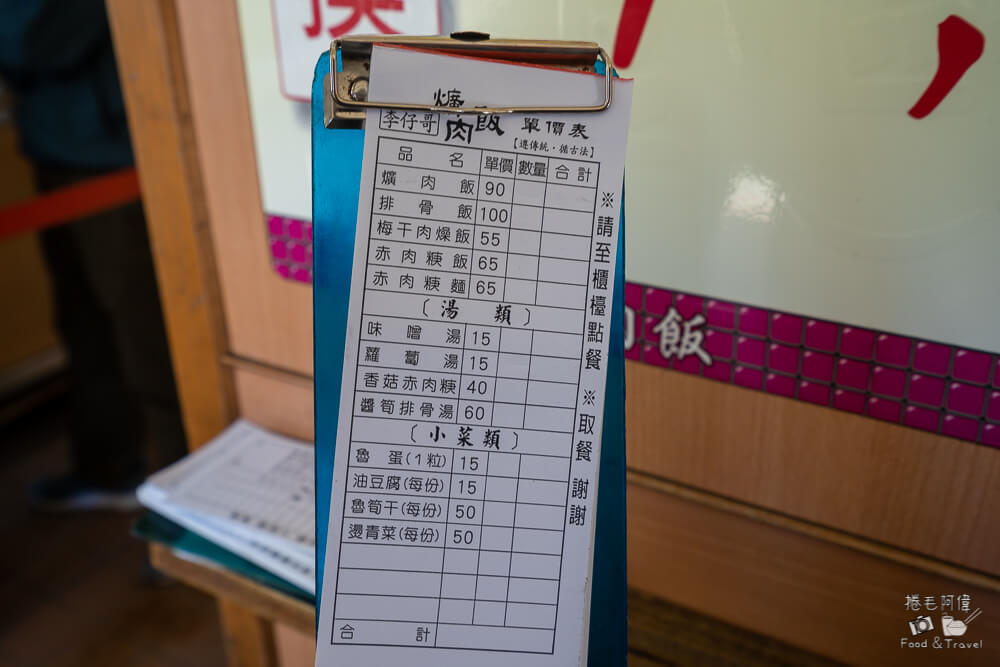 換
李仔哥 爌肉飯 單價表
【遵傳統・循古法】
品名 單價 數量 合計
爌肉飯 90
排骨飯 100
梅干肉燥飯 55
赤肉粳飯 65
赤肉粳麵 65
〔湯類〕
味噌湯 15
蘿蔔湯 15
香菇赤肉粳 40
醬筍排骨湯 60
〔小菜類〕
魯蛋(1粒) 15
油豆腐(每份) 15
魯筍干(每份) 50
燙青菜(每份) 50
合計
※請至櫃檯點餐 ※取餐 謝謝
肉飯
捲毛阿偉
Food & Travel